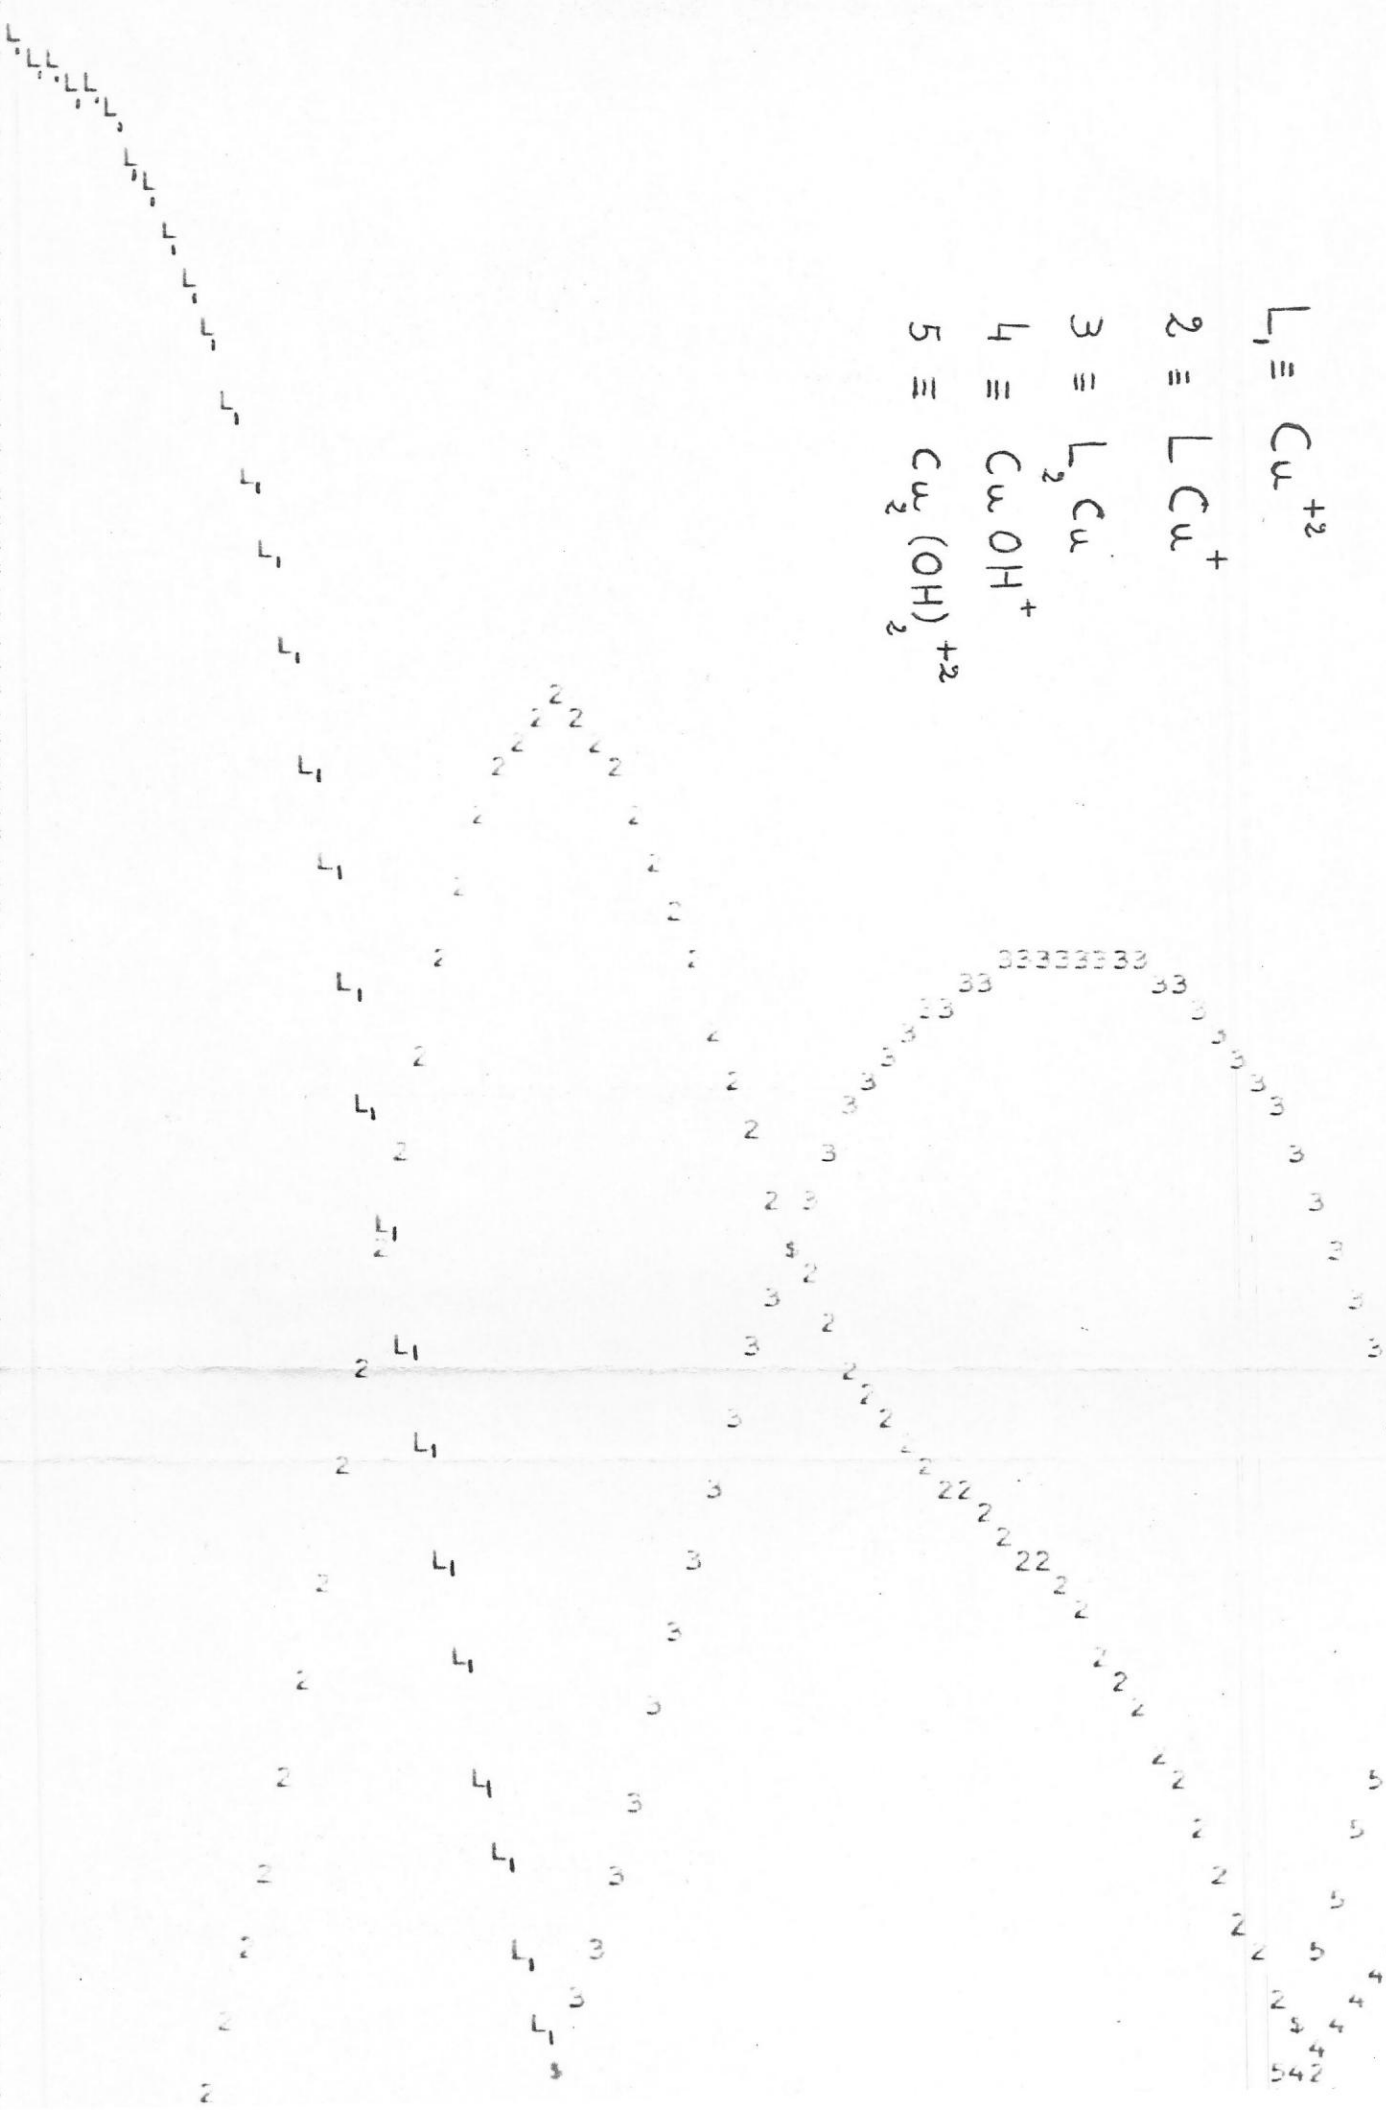 L₁ ≡ Cu⁺²
2 ≡ L Cu⁺
3 ≡ L₂ Cu
4 ≡ Cu OH⁺
5 ≡ Cu₂ (OH)₂⁺²